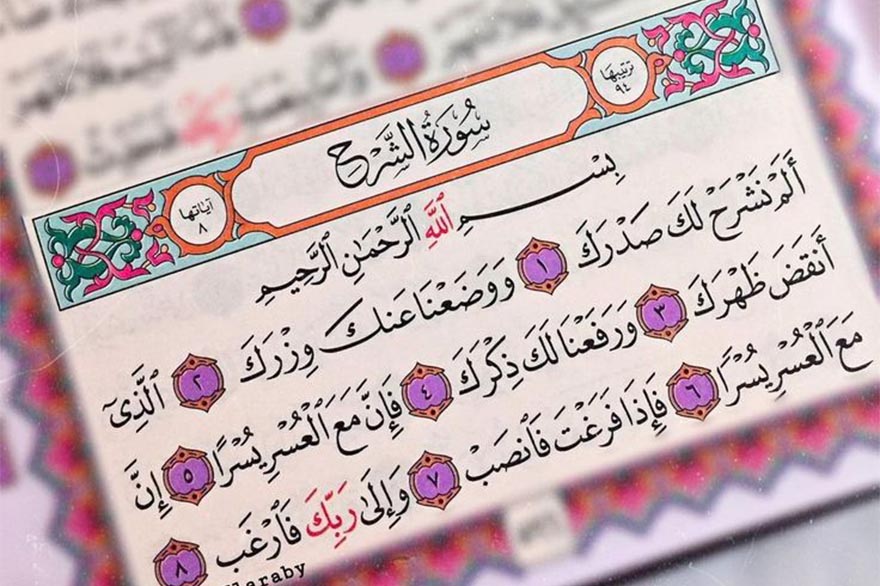 ترتيبها
٩٤
سُورَةُ الشَّرْحِ
آياتها
٨
بِسْمِ ٱللَّهِ ٱلرَّحْمَٰنِ ٱلرَّحِيمِ
أَلَمْ نَشْرَحْ لَكَ صَدْرَكَ ١ وَوَضَعْنَا عَنكَ وِزْرَكَ ٢ ٱلَّذِىٓ
أَنقَضَ ظَهْرَكَ ٣ وَرَفَعْنَا لَكَ ذِكْرَكَ ٤ فَإِنَّ مَعَ ٱلْعُسْرِ يُسْرًا ٥ إِنَّ
مَعَ ٱلْعُسْرِ يُسْرًا ٦ فَإِذَا فَرَغْتَ فَٱنصَبْ ٧ وَإِلَىٰ رَبِّكَ فَٱرْغَب ٨